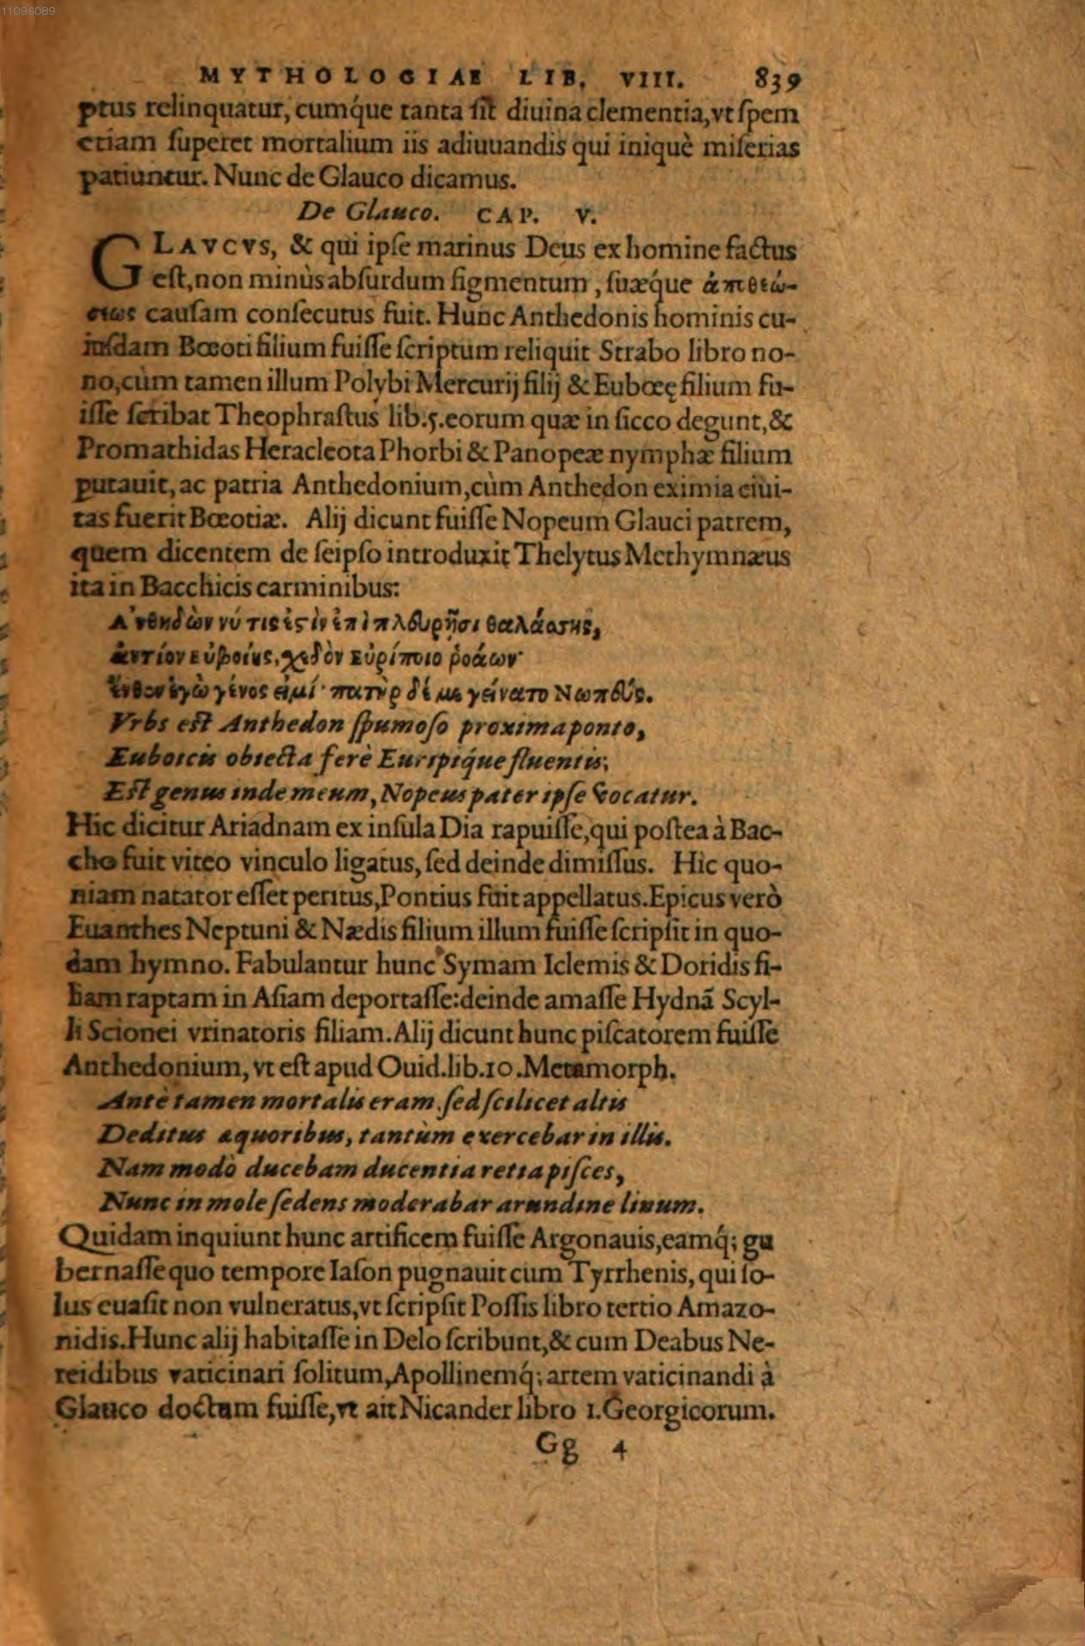 11098089
MYTHOLOGIAE LIB. VIII. 839
ptus relinquatur, cumq́ue tanta sit diuina clementia, vt spem
etiam superet mortalium iis adiuuandis qui iniquè miserias
patiuntur. Nunc de Glauco dicamus.
De Glauco. CAP. V.
GLAVCVS, & qui ipse marinus Deus ex homine factus
est, non minùs absurdum figmentum, suæq́ue ἀπθεώ-
σεως causam consecutus fuit. Hunc Anthedonis hominis cu-
iusdam Bœoti filium fuisse scriptum reliquit Strabo libro no-
no, cùm tamen illum Polybi Mercurij filij & Eubœę filium fu-
isse scribat Theophrastus lib.5. eorum quæ in sicco degunt, &
Promathidas Heracleota Phorbi & Panopeæ nymphæ filium
putauit, ac patria Anthedonium, cùm Anthedon eximia ciui-
tas fuerit Bœotiæ. Alij dicunt fuisse Nopeum Glauci patrem,
quem dicentem de seipso introduxit Thelytus Methymnæus
ita in Bacchicis carminibus:
Α᾿νθηδὼν νύ τις ἐςὶν ἐπὶ πλευρῇσι θαλάσσης,
ἀντίον εὐβοίης, χεδὸν εὐρίποιο ῥοάων·
ἔνθεν ἐγὼ γένος εἰμί· πατὴρ δέ με γείνατο Νωπεύς.
Vrbs est Anthedon spumoso proxima ponto,
Euboicis obiecta ferè Euripiq́ue fluentis;
Est genus inde meum, Nopeus pater ipse vocatur.
Hic dicitur Ariadnam ex insula Dia rapuisse, qui postea à Bac-
cho fuit viteo vinculo ligatus, sed deinde dimissus. Hic quo-
niam natator esset peritus, Pontius fuit appellatus. Epicus verò
Euanthes Neptuni & Nædis filium illum fuisse scripsit in quo-
dam hymno. Fabulantur hunc Symam Iclemis & Doridis fi-
liam raptam in Asiam deportasse: deinde amasse Hydnã Scyl-
li Scionei vrinatoris filiam. Alij dicunt hunc piscatorem fuisse
Anthedonium, vt est apud Ouid. lib. 10. Metamorph.
Antè tamen mortalis eram, sed scilicet altis
Deditus æquoribus, tantùm exercebar in illis.
Nam modò ducebam ducentia retia pisces,
Nunc in mole sedens moderabar arundine linum.
Quidam inquiunt hunc artificem fuisse Argonauis, eamq́; gu
bernasse quo tempore Iason pugnauit cum Tyrrhenis, qui so-
lus euasit non vulneratus, vt scripsit Possis libro tertio Amazo-
nidis. Hunc alij habitasse in Delo scribunt, & cum Deabus Ne-
reidibus vaticinari solitum, Apollinemq́; artem vaticinandi à
Glauco doctum fuisse, vt ait Nicander libro 1. Georgicorum.
Gg 4